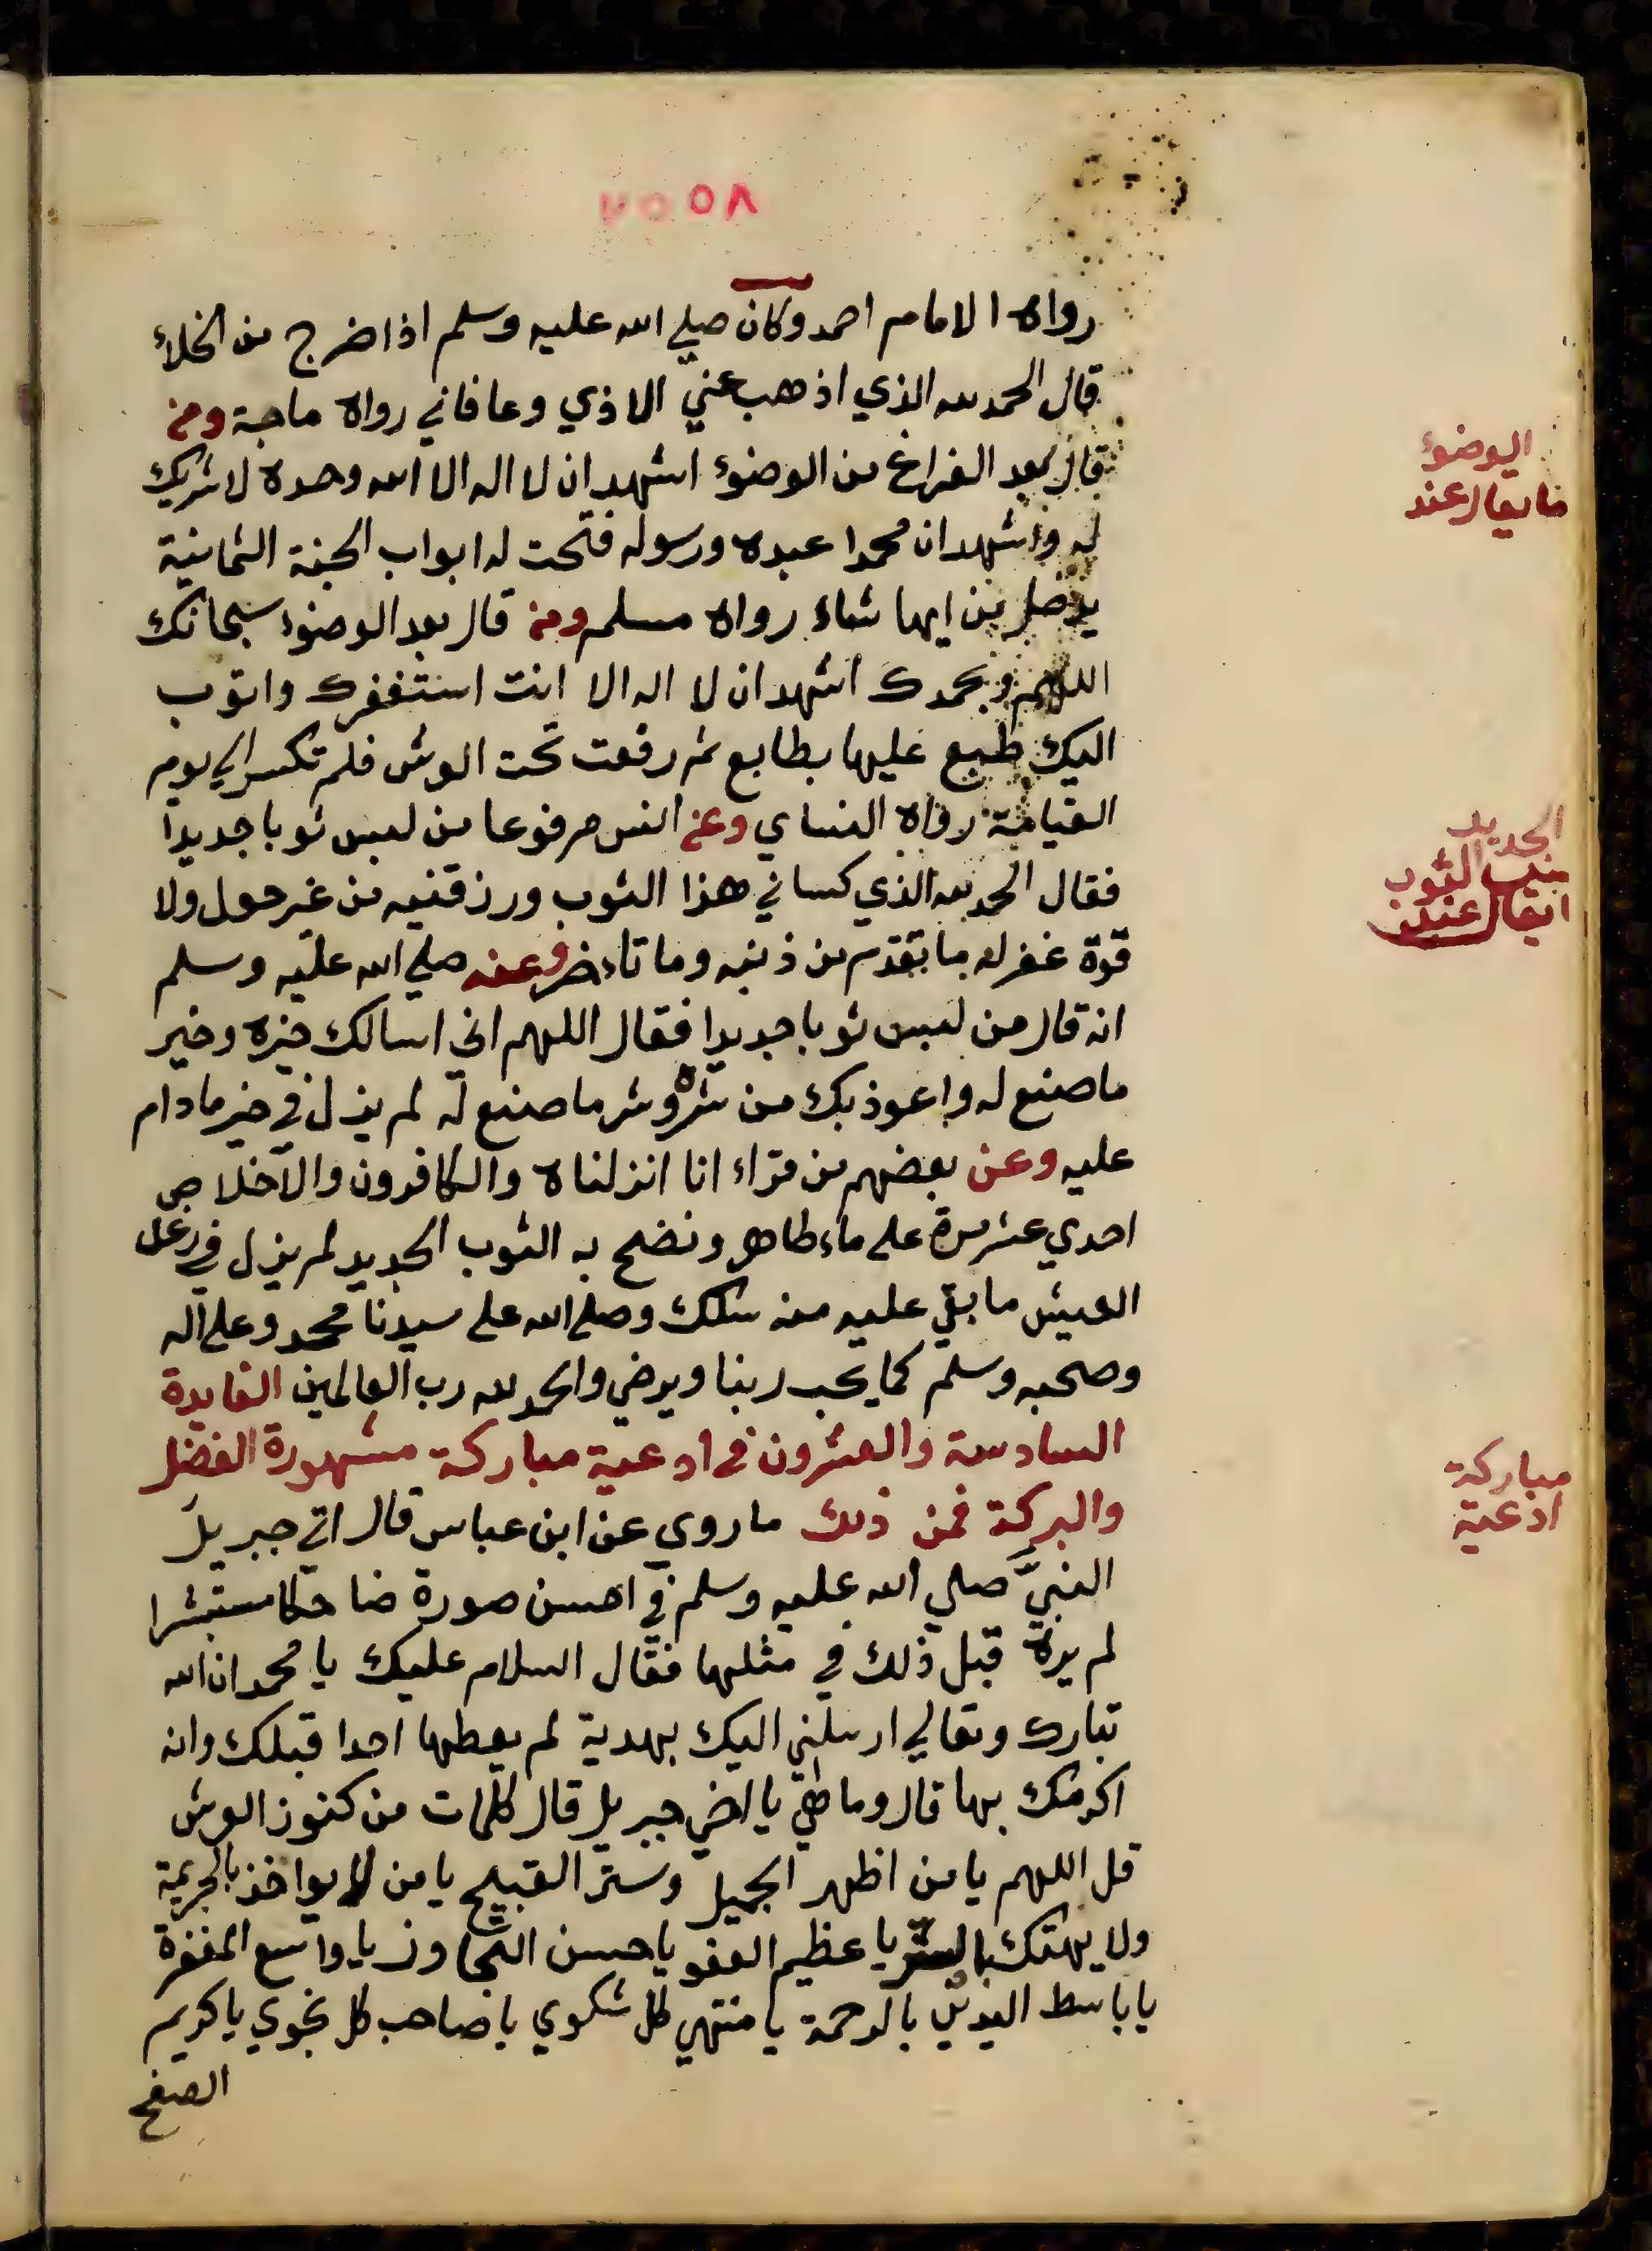 رواه الامام احمد وكان صلي الله عليه وسلم اذا خرج من الخلاء
قال الحمد لله الذي اذهب عني الاذي وعافاني رواه ماجة ومن
قال بعد الفراغ من الوضوء اشهد ان لا اله الا الله وحده لا شريك
له واشهد ان محمدا عبده ورسوله فتحت له ابواب الجنة الثمانية
يدخل من ايها شاء رواه مسلم ومن قال بعد الوضوء سبحانك
اللهم وبحمدك اشهد ان لا اله الا انت استغفرك واتوب
اليك طبع عليها بطابع ثم رفعت تحت العرش فلم تكسر الي يوم
القيامة رواه النساي وعن انس مرفوعا من لبس ثوبا جديدا
فقال الحمد لله الذي كساني هذا الثوب ورزقنيه من غير حول ولا
قوة غفر له ما تقدم من ذنبه وما تاءخر وعنه صلي الله عليه وسلم
انه قال من لبس ثوبا جديدا فقال اللهم اني اسالك خيره وخير
ما صنع له واعوذ بك من شره وشر ما صنع له لم يزل في خير مادام
عليه وعن بعضهم من قراء انا انزلناه والكافرون والاخلاص
احدي عشر مرة علي ماء طاهر ونضح به الثوب الجديد لم يزل في رغد
العيش ما بقي عليه منه سلك وصلي الله علي سيدنا محمد وعلي اله
وصحبه وسلم كما يحب ربنا ويرضي والحمد لله رب العالمين الفايدة
السادسة والعشرون في ادعية مباركة مشهورة الفضل
والبركة فمن ذلك ما روي عن ابن عباس قال اتي جبريل
النبي صلي الله عليه وسلم في احسن صورة ضاحكا مستبشرا
لم يره قبل ذلك في مثلها فقال السلام عليك يا محمد ان الله
تبارك وتعالي ارسلني اليك بهدية لم يعطها احدا قبلك وانه
اكرمك بها قال وما هي يا اخي جبريل قال كلمات من كنوز العرش
قل اللهم يا من اظهر الجميل وستر القبيح يا من لا يواخذ بالجريمة
ولا يهتك بالستر يا عظيم العفو يا حسن التجاوز يا واسع المغفرة
يا باسط اليدين بالرحمة يا منتهي كل شكوي يا صاحب كل نجوي يا كريم
الصفح
الوضوء
ما يقال عند
الجديد
الثوب
مباركة
ادعية